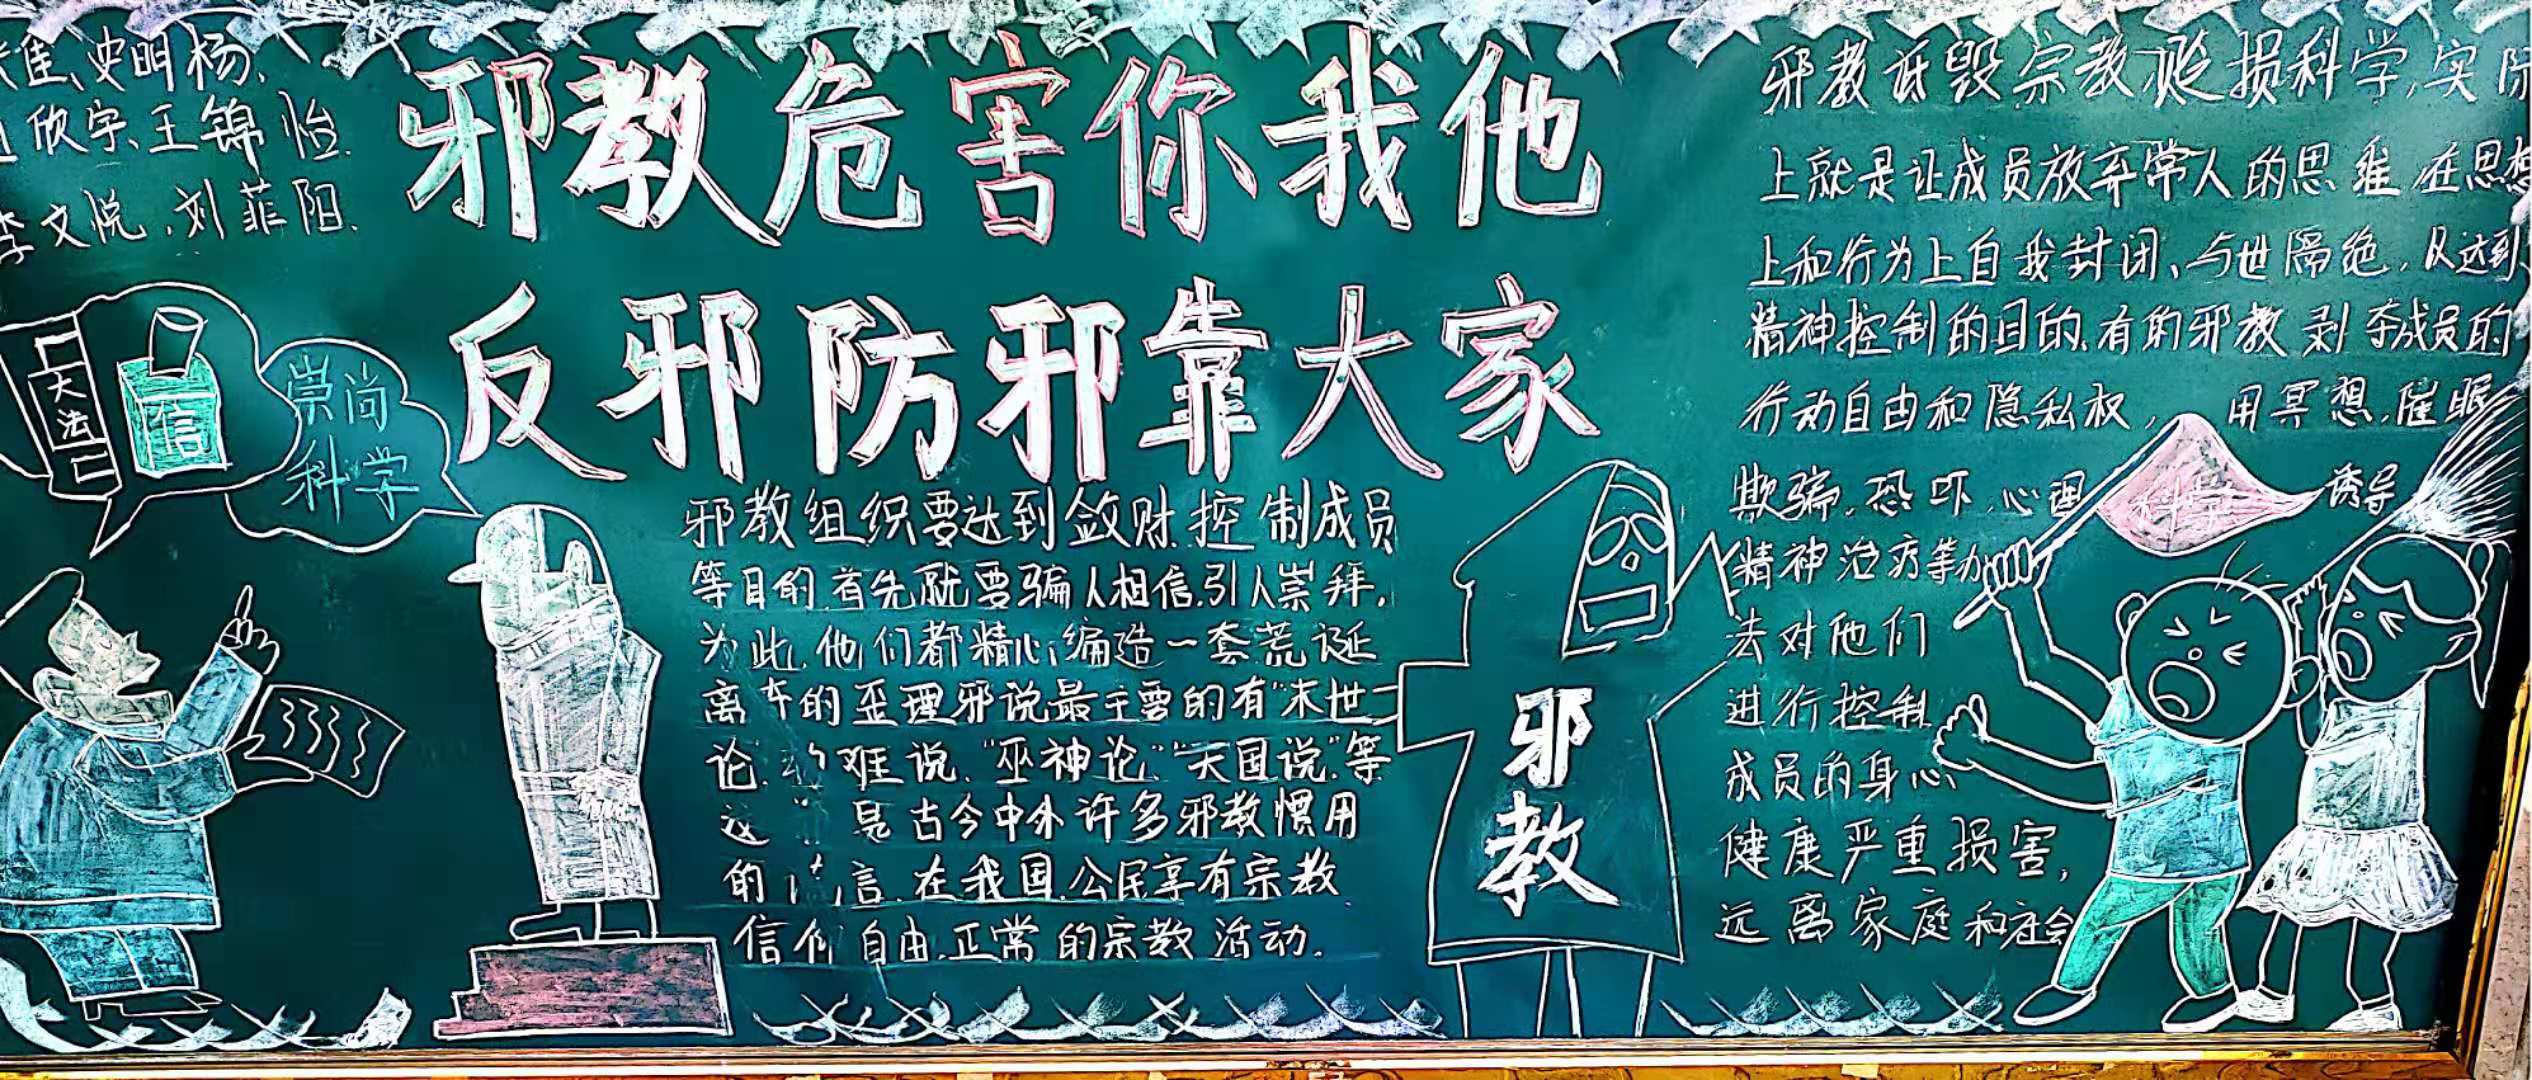 佳、史明杨、
欣宇、王锦怡.
李文悦、刘菲阳.
邪教危害你我他
反邪防邪靠大家
大法
信
崇尚
科学
邪教组织要达到敛财.控制成员
等目的.首先就要骗人相信.引人崇拜.
为此.他们都精心编造一套荒诞
离奇的歪理邪说最主要的有“末世
论.难说.“巫神论”“天国说”.等
这是古今中外许多邪教惯用
的言.在我国.公民享有宗教
信仰自由.正常的宗教活动.
邪
教
邪教诋毁宗教.贬损科学,实际
上就是让成员放弃常人的思维.在思想
上和行为上自我封闭、与世隔绝.以达到
精神控制的目的.有的邪教剥夺成员的
行动自由和隐私权,用冥想.催眠
欺骗.恐吓.心理诱导
科学
精神治疗等办
法对他们
进行控制
成员的身心
健康严重损害,
远离家庭和社会